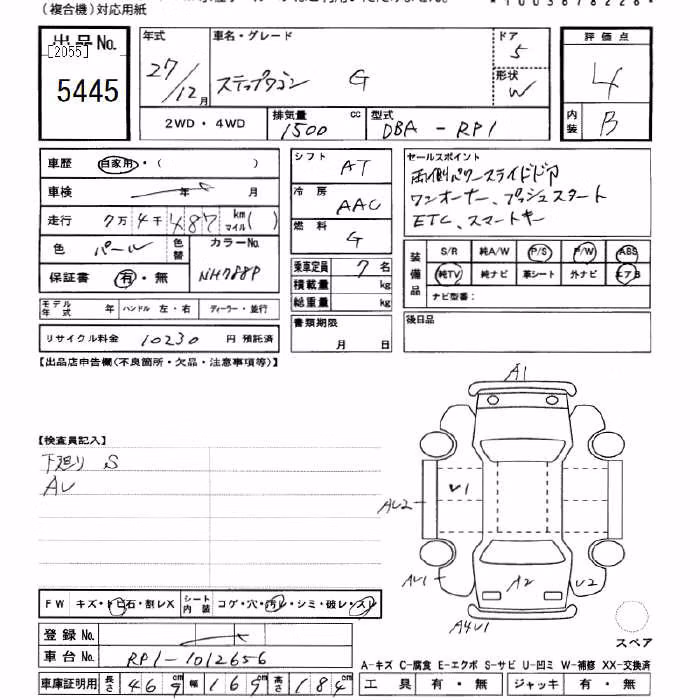 (複合機)対応用紙
*1003678226*
出品No.
[2055]
5445
年式
27/12月
車名・グレード
ステップワゴン G
ドア
5
形状
W
評価点
4
内装
B
2WD・4WD
排気量
1500 cc
型式
DBA - RP1
車歴 自家用・( )
車検 年 月
走行 7万 4千 487 km マイル( )
色 パール 色替 カラーNo.
NH788P
保証書 有・無
モデル年式 年 ハンドル 左・右 ディーラー・並行
リサイクル料金 10230 円 預託済
シフト AT
冷房 AAC
燃料 G
乗車定員 7 名
積載量 kg
総重量 kg
書類期限
月 日
セールスポイント
両側パワースライドドア
ワンオーナー、プッシュスタート
ETC、スマートキー
装備品
S/R 純A/W P/S P/W ABS
純TV 純ナビ 革シート 外ナビ エアB
ナビ型番:
後日品
【出品店申告欄(不良箇所・欠品・注意事項等)】
【検査員記入】
下廻り S
AU
A1
U1
AU2
AU1
A2
U2
A4U1
スペア
FW キズ・トビ石・割レX シート内装 コゲ・穴・汚レ・シミ・破レ・スレ
登録No.
車台No. RP1-1012656
車庫証明用 長さ 469 幅 169 高さ 184
A-キズ C-腐食 E-エクボ S-サビ U-凹ミ W-補修 XX-交換済
工具 有・無 ジャッキ 有・無